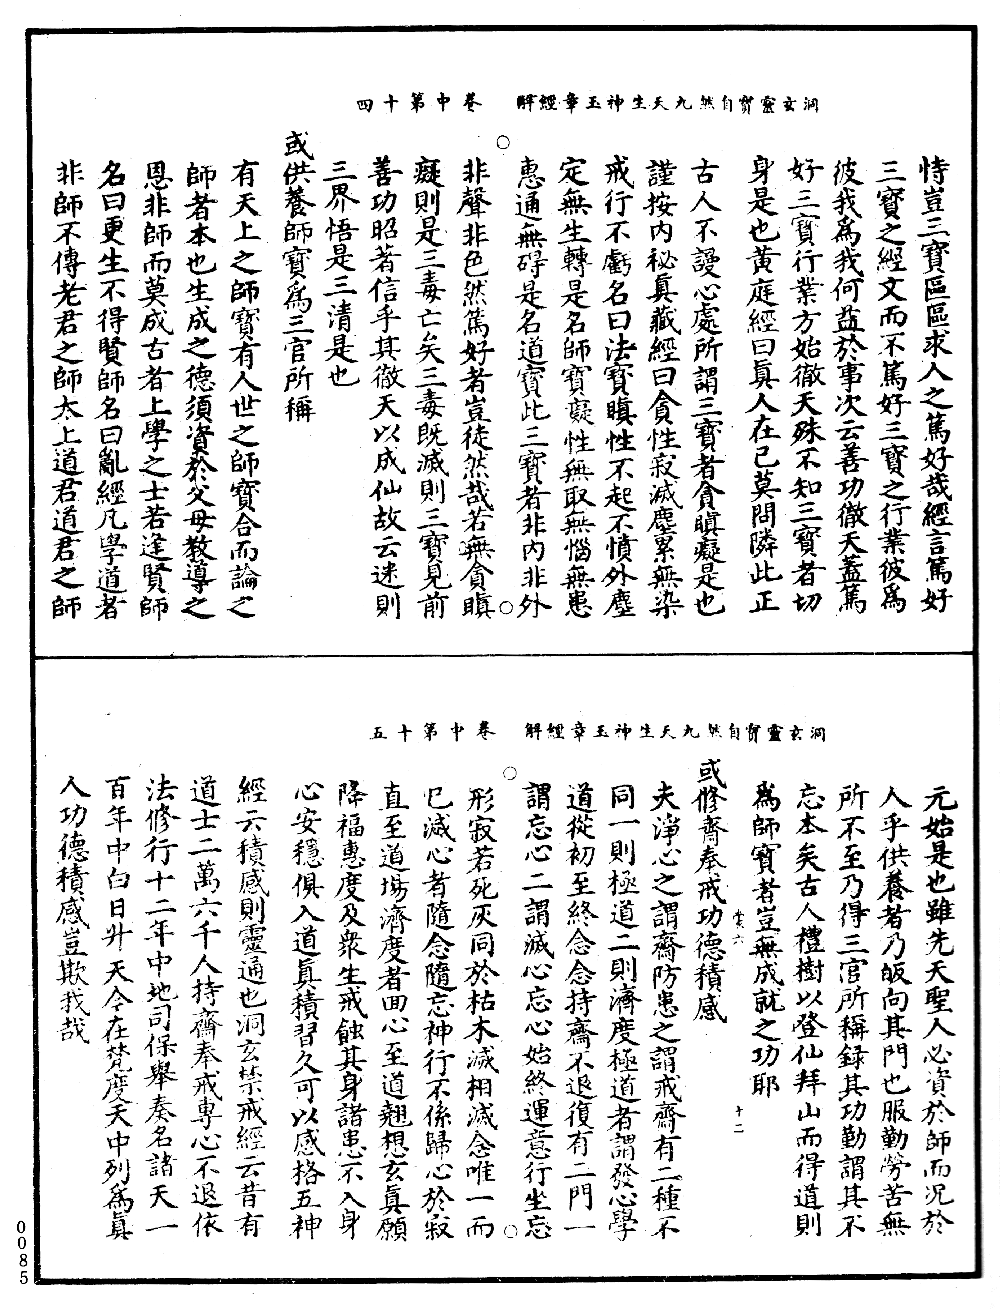 洞玄靈寶自然九天生神玉章經解　卷中第十四
恃豈三寶區區求人之篤好哉經言篤好
三寶之經文而不篤好三寶之行業彼爲
彼我爲我何益於事次云善功徹天蓋篤
好三寶行業方始徹天殊不知三寶者切
身是也黃庭經曰眞人在己莫問隣此正
古人不謾心處所謂三寶者貪瞋癡是也
謹按內祕眞藏經曰貪性寂滅塵累無染
戒行不虧名曰法寶瞋性不起不憤外塵
定無生轉是名師寶癡性無取無惱無患
惠通無碍是名道寶此三寶者非內非外
非聲非色然篤好者豈徒然哉若無貪瞋
癡則是三毒亡矣三毒既滅則三寶見前
善功昭著信乎其徹天以成仙故云迷則
三界悟是三清是也
或供養師寶爲三官所稱
有天上之師寶有人世之師寶合而論之
師者本也生成之德須資於父母教導之
恩非師而莫成古者上學之士若逢賢師
名曰更生不得賢師名曰亂經凡學道者
非師不傳老君之師太上道君道君之師
洞玄靈寶自然九天生神玉章經解　卷中第十五
元始是也雖先天聖人必資於師而況於
人乎供養者乃皈向其門也服勤勞苦無
所不至乃得三官所稱録其功勤謂其不
忘本矣古人禮樹以登仙拜山而得道則
爲師寶者豈無成就之功耶
十二
或修齋奉戒功德積感
夫淨心之謂齋防患之謂戒齋有二種不
同一則極道二則濟度極道者謂發心學
道從初至終念念持齋不退復有二門一
謂忘心二謂滅心忘心始終運意行坐忘
形寂若死灰同於枯木滅相滅念唯一而
已滅心者隨念隨忘神行不係歸心於寂
直至道場濟度者回心至道翹想玄眞願
降福惠度及衆生戒飭其身諸患不入身
心安穩俱入道眞積習久可以感格五神
經云積感則靈通也洞玄禁戒經云昔有
道士二萬六千人持齋奉戒專心不退依
法修行十二年中地司保舉奏名諸天一
百年中白日升天今在梵度天中列爲眞
人功德積感豈欺我哉
0085